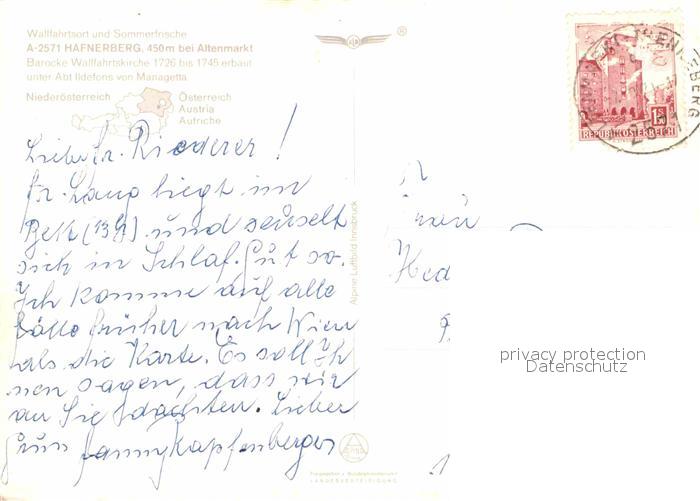 Wallfahrtsort und Sommerfrische
A-2571 HAFNERBERG, 450m bei Altenmarkt
Barocke Wallfahrtskirche 1726 bis 1745 erbaut
unter Abt Ildefons von Managetta
Niederösterreich
Österreich
Austria
Autriche
Liebe Fr. Riederer!
Fr. Lang liegt im
Bett (13h) und
sich in Schlaf. Gut so.
Ich komme auf alle
Fälle früher nach Wien
als die Karte. Es soll Ih
nen sagen, dass wir
an Sie dachten. Lieber
Gruss Fanny Kapfenberger
Alpine Luftbild Innsbruck
Frau
Hed
1
REPUBLIK ÖSTERREICH
2571
privacy protection
Datenschutz
LANDESVERTEIDIGUNG
®